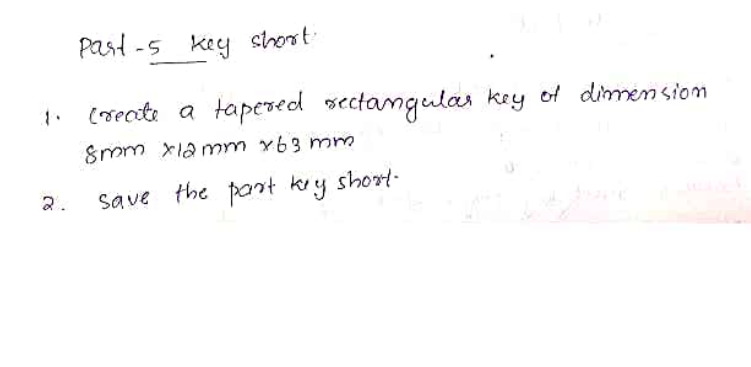 Part-5 key short.
1. Create a tapered rectangular key of dimension
8mm x12mm x63mm
2. Save the part key short.